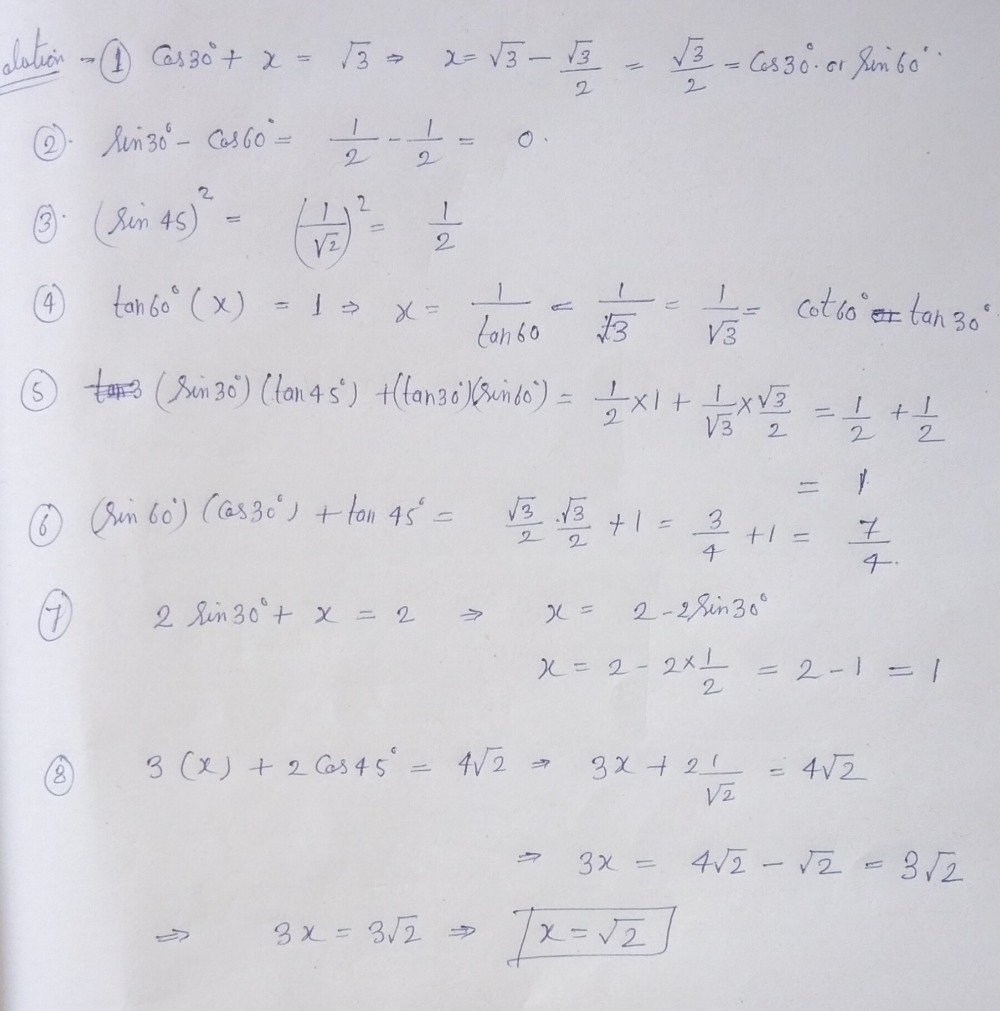 ① Cos30° + x = √3 ⇒ x = √3 - √3/2 = √3/2 = Cos30° or Sin60°
②. Sin30° - Cos60° = 1/2 - 1/2 = 0.
③. (Sin 45)² = (1/√2)² = 1/2
④ tan60° (x) = 1 ⇒ x = 1/tan60 = 1/√3 = 1/√3 = cot60° tan30°.
⑤ (Sin30°) (tan45°) + (tan30°)(Sin60°) = 1/2 × 1 + 1/√3 × √3/2 = 1/2 + 1/2
= 1
⑥ (Sin 60°) (Cos30°) + tan 45° = √3/2 . √3/2 + 1 = 3/4 + 1 = 7/4.
⑦ 2 Sin30° + x = 2 ⇒ x = 2 - 2Sin30°
x = 2 - 2×1/2 = 2 - 1 = 1
⑧ 3 (x) + 2 Cos45° = 4√2 ⇒ 3x + 2 1/√2 = 4√2
⇒ 3x = 4√2 - √2 = 3√2
⇒ 3x = 3√2 ⇒ x = √2